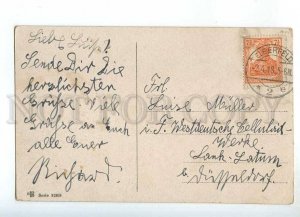 Liebe Luise!
Sende Dir die
herzlichsten
Grüße viele
Grüße an auch
alle Euer
Richard.
Frl.
Luise Müller
i. F. Westdeutsche Celluloid-
Werke
Lank-Latum
b. Düsseldorf.
Serie
oldthing